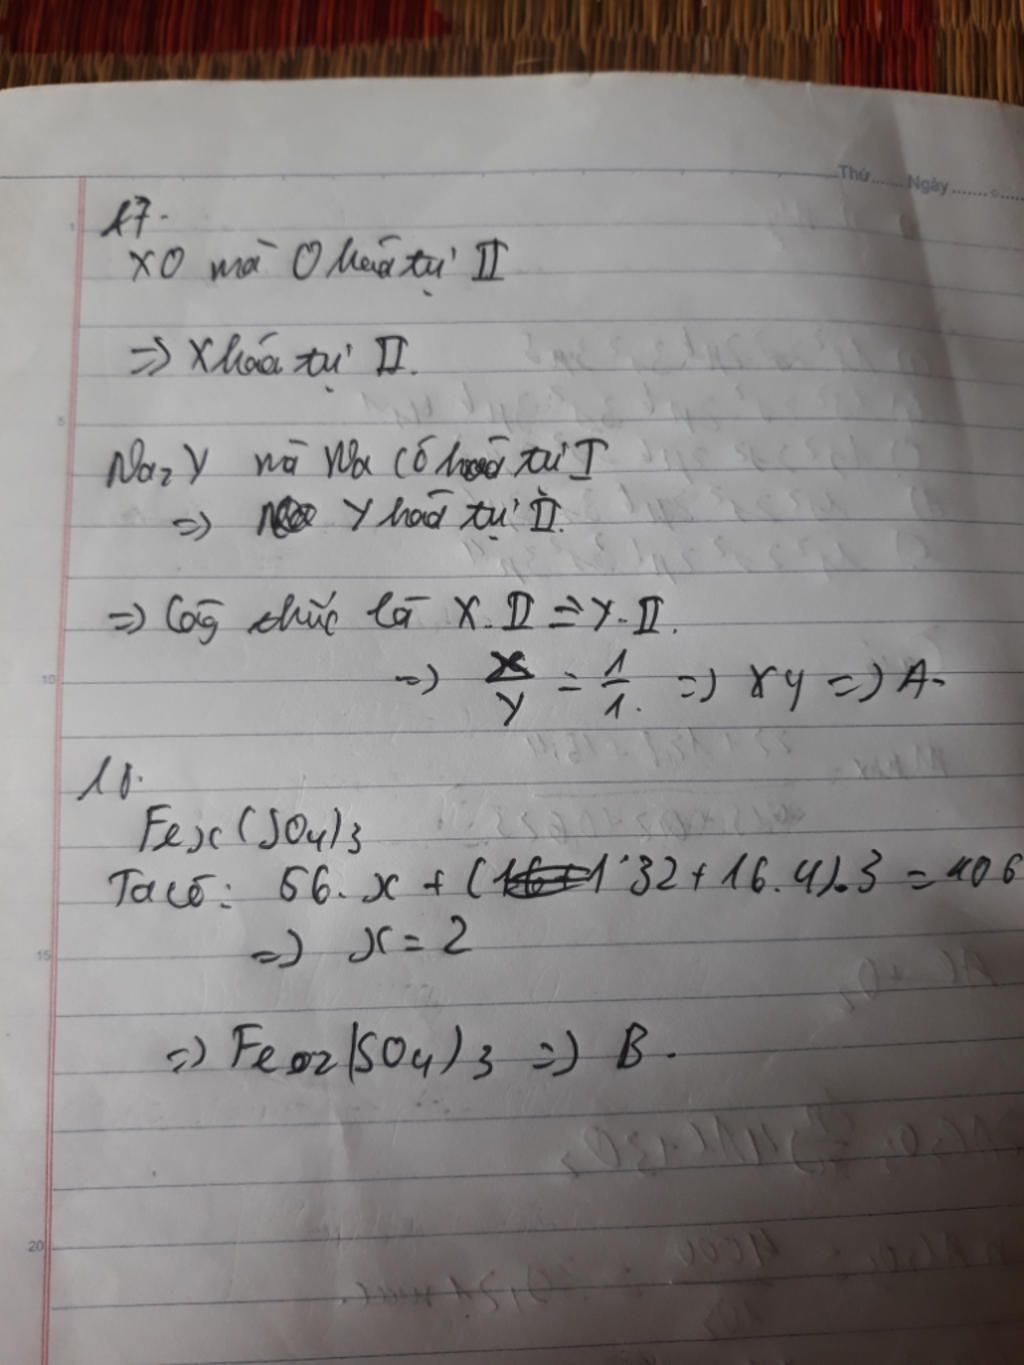 Thứ...... Ngày.......
1
17.
XO mà O hoá tự II
=> X hoá tự II.
5
Na₂Y mà Na có hoá trị I
=> Y hoá tự II.
=> Côg thức là X.II => Y.II.
10
=> X/Y = 1/1. => XY => A.
18.
Feₓ(SO₄)₃
Ta có: 56.x + (1.32+16.4).3 = 406
15
=> x = 2
=> Fe₂(SO₄)₃ => B.
20